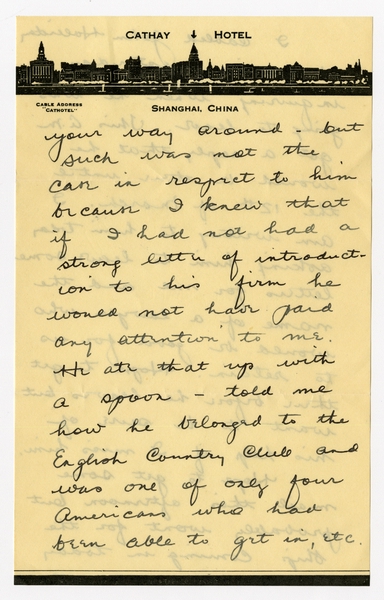 CATHAY HOTEL
CABLE ADDRESS
"CATHOTEL"
SHANGHAI, CHINA
your way around - but
such was not the
case in respect to him
because I knew that
if I had not had a
strong letter of introduct-
ion to his firm he
would not have paid
any attention to me.
He ate that up with
a spoon - told me
how he belonged to the
English Country Club and
was one of only four
Americans who had
been able to get in, etc.